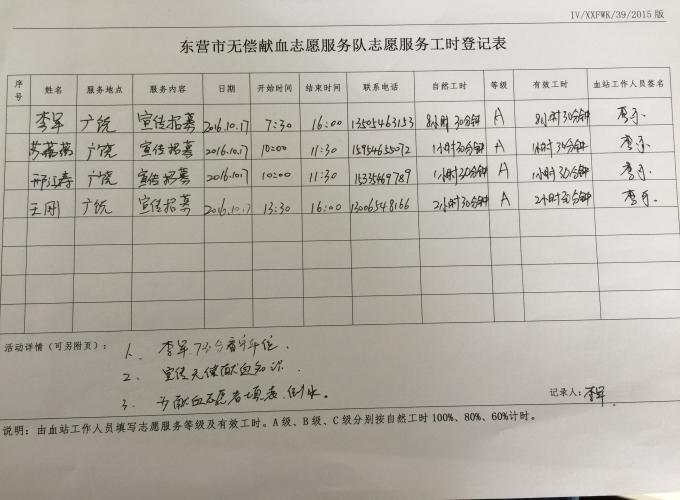 IV/XXFWK/39/2015版
东营市无偿献血志愿服务队志愿服务工时登记表
序号 姓名 服务地点 服务内容 日期 开始时间 结束时间 联系电话 自然工时 等级 有效工时 血站工作人员签名
李军 广饶 宣传招募 2016.10.17 7:30 16:00 13505463153 8小时30分钟 A 8小时30分钟
广饶 宣传招募 2016.10.17 10:00 11:30 15954655072 1小时30分钟 A 1小时30分钟
广饶 宣传招募 2016.10.17 10:00 11:30 15335469789 1小时30分钟 A 1小时30分钟
王刚 广饶 宣传招募 2016.10.17 13:30 16:00 1306548166 2小时30分钟 A 2小时30分钟
活动详情（可另附页）：
1、李军 7:30分
2、宣传无偿献血知识.
3、为献血志愿者填表、倒水。
记录人：李军
说明：由血站工作人员填写志愿服务等级及有效工时。A级、B级、C级分别按自然工时100%、80%、60%计时。